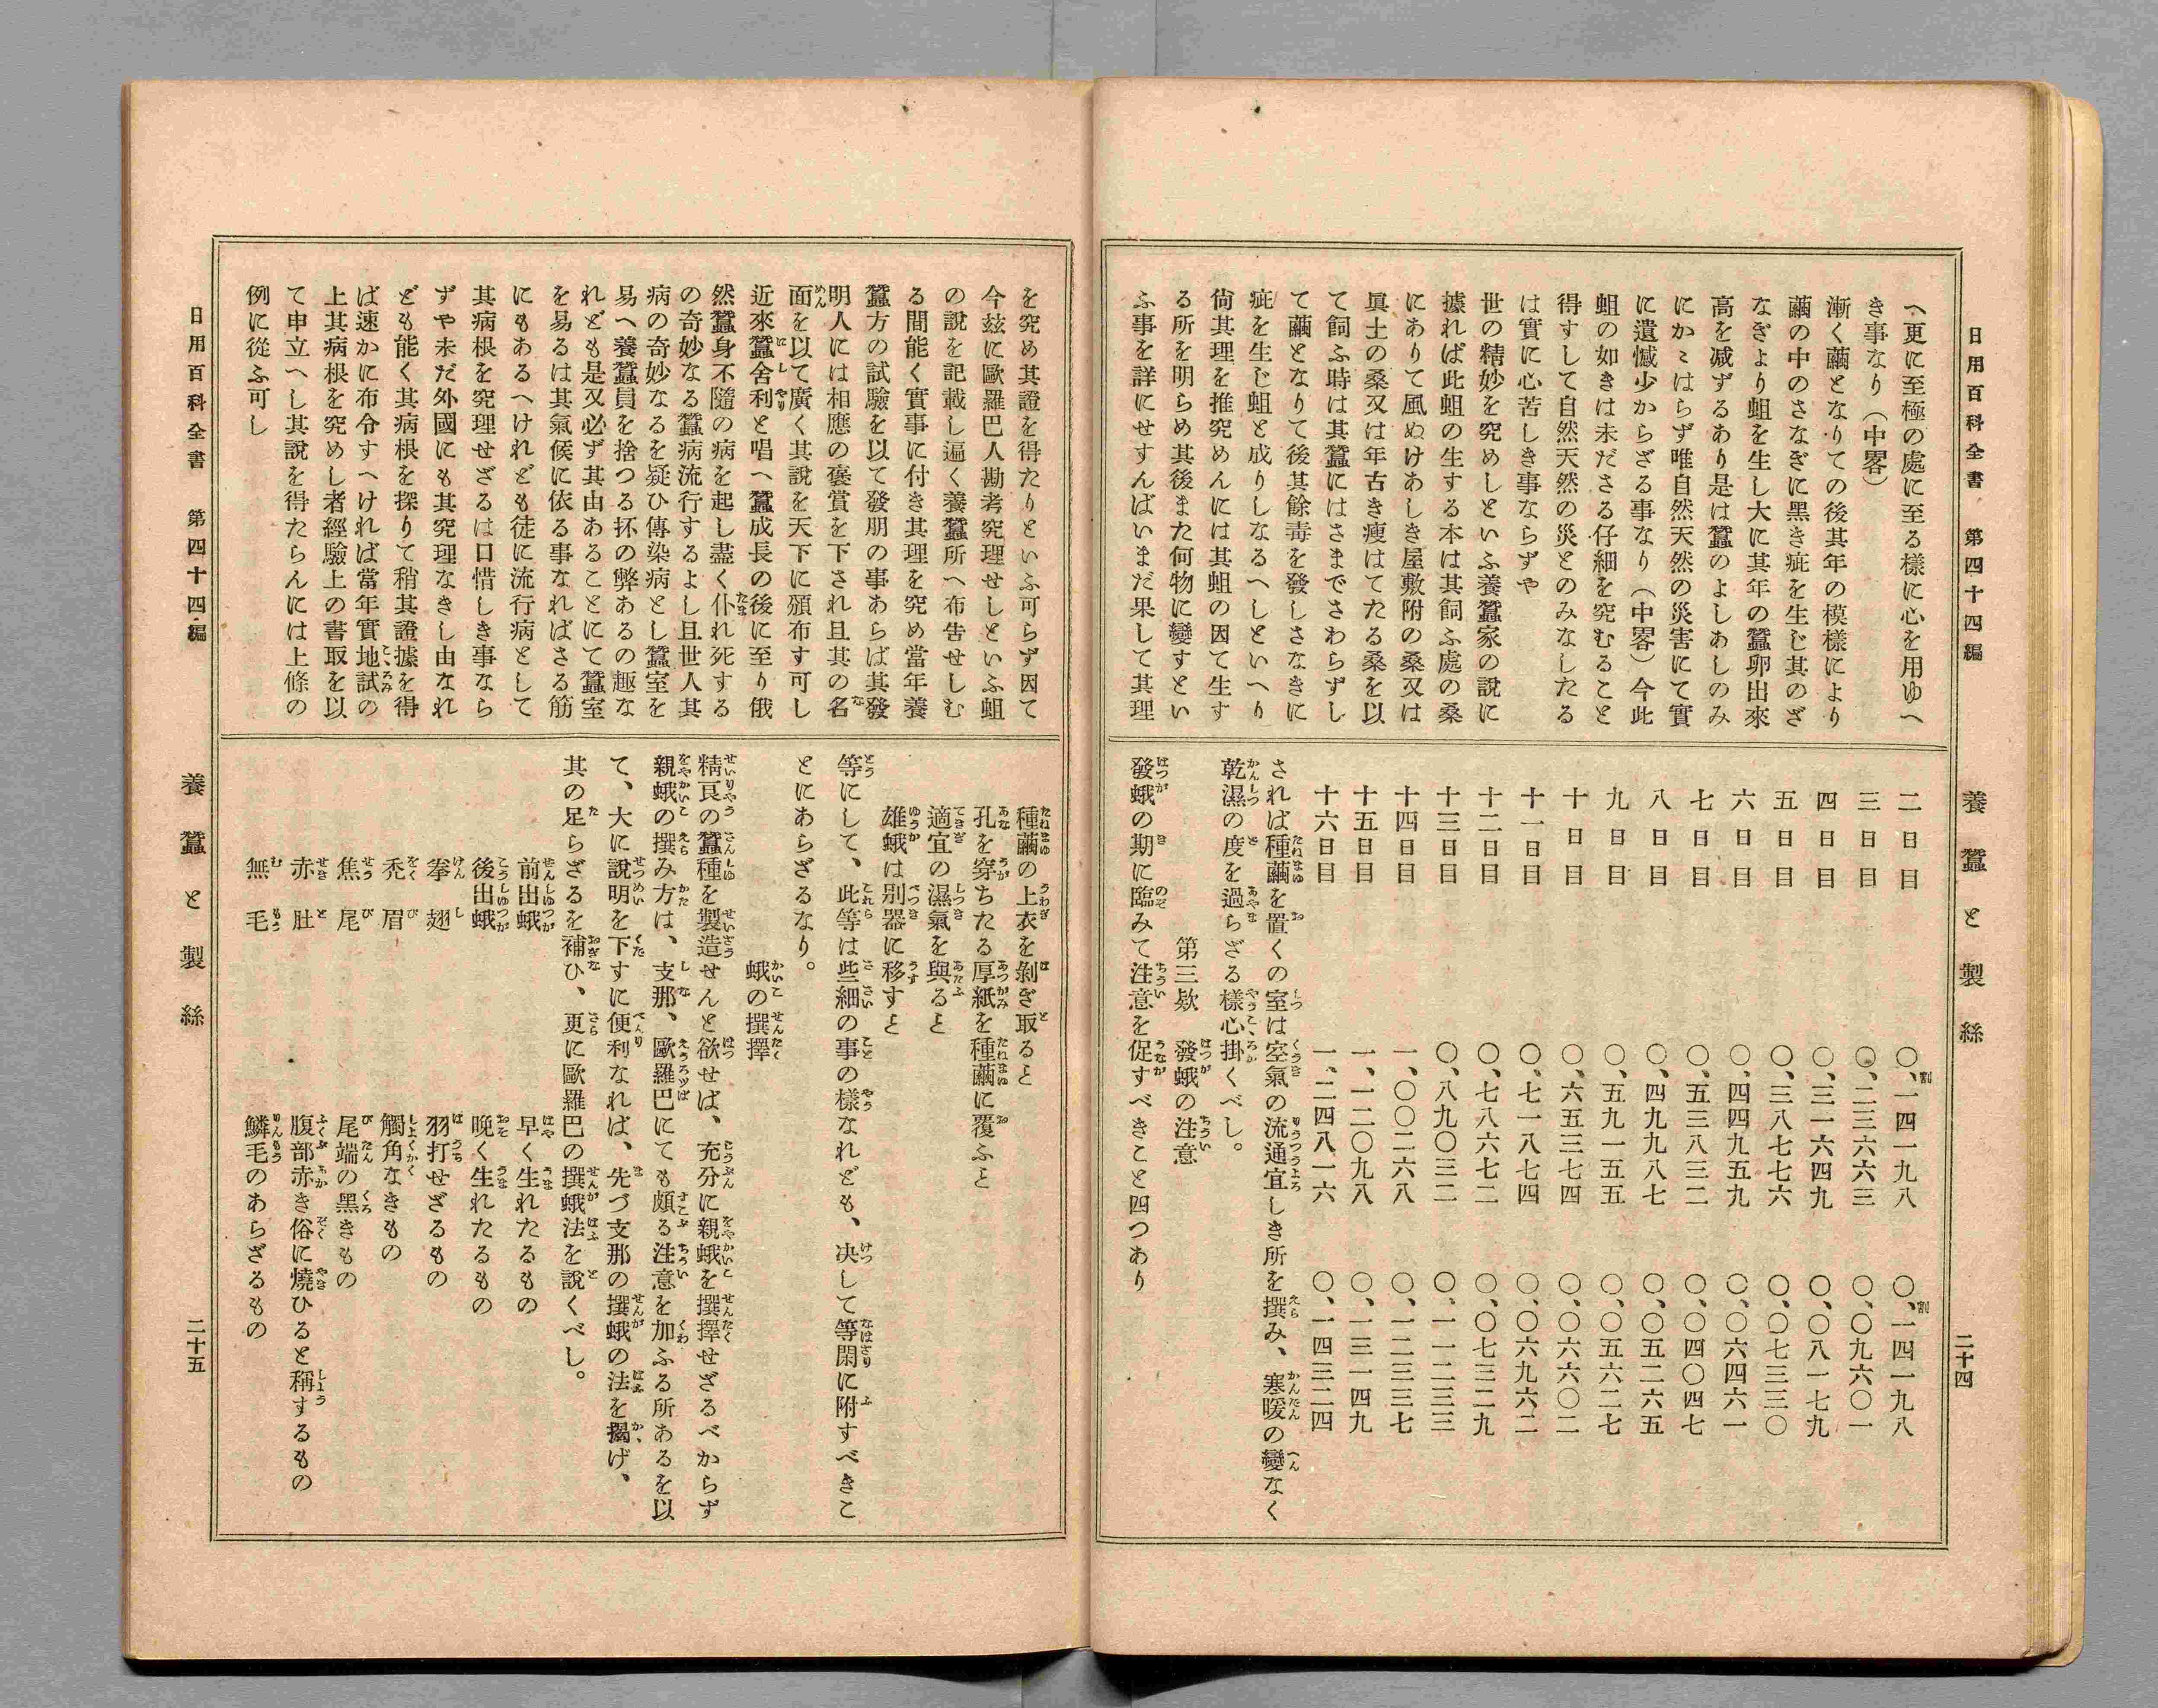 日用百科全書　第四十四編
養蠶と製絲
二十四
へ更に至極の處に至る樣に心を用ゆへ
き事なり（中畧）
漸く繭となりての後其年の模樣により
繭の中のさなぎに黑き疵を生じ其のざ
なぎより蛆を生し大に其年の蠶卵出來
高を減ずるあり是は蠶のよしあしのみ
にかゝはらず唯自然天然の災害にて實
に遺憾少からざる事なり（中畧）今此
蛆の如きは未ださる仔細を究むること
得すして自然天然の災とのみなしたる
は實に心苦しき事ならずや
世の精妙を究めしといふ養蠶家の說に
據れば此蛆の生する本は其飼ふ處の桑
にありて風ぬけあしき屋敷附の桑又は
眞土の桑又は年古き瘦はてたる桑を以
て飼ふ時は其蠶にはさまでさわらずし
て繭となりて後其餘毒を發しさなきに
疵を生じ蛆と成りしなるへしといへり
尙其理を推究めんには其蛆の因て生す
る所を明らめ其後また何物に變すとい
ふ事を詳にせすんばいまだ果して其理
二日目　〇、一四一九八　〇、一四一九八
三日目　〇、二三六六三　〇、〇九六〇一
四日目　〇、三一六四九　〇、〇八一七九
五日目　〇、三八七七六　〇、〇七三三〇
六日目　〇、四四九五九　〇、〇六四六一
七日目　〇、五三八三二　〇、〇四〇四七
八日目　〇、四九九八七　〇、〇五二六五
九日目　〇、五九一五五　〇、〇五六二七
十日目　〇、六五三七四　〇、〇六六〇二
十一日目　〇、七一八七四　〇、〇六九六二
十二日目　〇、七八六七二　〇、〇七三二九
十三日目　〇、八九〇三二　〇、一一二三三
十四日目　一、〇〇二六八　〇、一二三三七
十五日目　一、一二〇九八　〇、一三一四九
十六日目　一、二四八一六　〇、一四三二四
されば種繭を置くの室は空氣の流通宜しき所を撰み、寒暖の變なく
乾濕の度を過らざる樣心掛くべし。
第三欵　發蛾の注意
發蛾の期に臨みて注意を促すべきこと四つあり
を究め其證を得たりといふ可らず因て
今玆に歐羅巴人勘考究理せしといふ蛆
の說を記載し遍く養蠶所へ布告せしむ
る間能く實事に付き其理を究め當年養
蠶方の試驗を以て發朋の事あらば其發
明人には相應の褒賞を下され且其の名
面を以て廣く其說を天下に頒布す可し
近來蠶舍利と唱へ蠶成長の後に至り俄
然蠶身不隨の病を起し盡く仆れ死する
の奇妙なる蠶病流行するよし且世人其
病の奇妙なるを疑ひ傳染病とし蠶室を
易へ養蠶員を捨つる抔の弊あるの趣な
れども是又必ず其由あることにて蠶室
を易るは其氣候に依る事なればさる筋
にもあるへけれども徒に流行病として
其病根を究理せざるは口惜しき事なら
ずや未だ外國にも其究理なきし由なれ
ども能く其病根を探りて稍其證據を得
ば速かに布令すへければ當年實地試の
上其病根を究めし者經驗上の書取を以
て申立へし其說を得たらんには上條の
例に從ふ可し
種繭の上衣を剝ぎ取ると
孔を穿ちたる厚紙を種繭に覆ふと
適宜の濕氣を與ると
雄蛾は別器に移すと
等にして、此等は些細の事の樣なれども、決して等閑に附すべきこ
とにあらざるなり。
蛾の撰擇
精良の蠶種を製造せんと欲せば、充分に親蛾を撰擇せざるべからず
親蛾の撰み方は、支那、歐羅巴にても頗る注意を加ふる所あるを以
て、大に說明を下すに便利なれば、先づ支那の撰蛾の法を揭げ、
其の足らざるを補ひ、更に歐羅巴の撰蛾法を說くべし。
前出蛾　早く生れたるもの
後出蛾　晩く生れたるもの
拳翅　羽打せざるもの
禿眉　觸角なきもの
焦尾　尾端の黑きもの
赤肚　腹部赤き俗に燒ひると稱するもの
無毛　鱗毛のあらざるもの
日用百科全書　第四十四編
養蠶と製絲
二十五